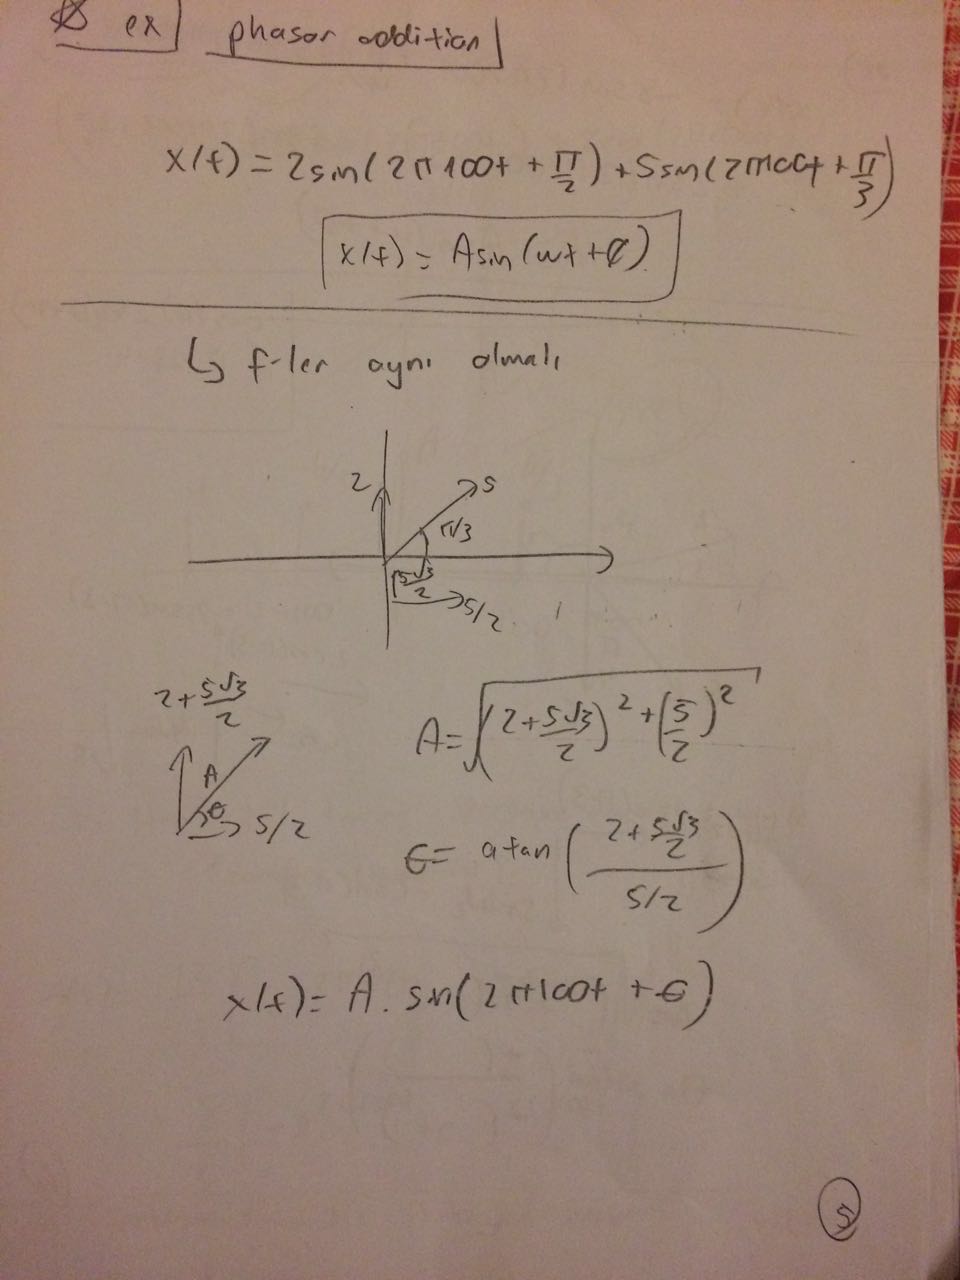 ex phasor addition
x(t) = 2sin(2π100t + π/2) + 5sin(2π100t + π/3)
x(t) = Asin(wt + φ)
↳ f-ler aynı olmalı
2 5
π/3
5√3/2
5/2
2+5√3/2
A
θ 5/2
A = √((2+5√3/2)² + (5/2)²)
θ = atan((2+5√3/2)/(5/2))
x(t) = A. sin(2π100t + θ)
5